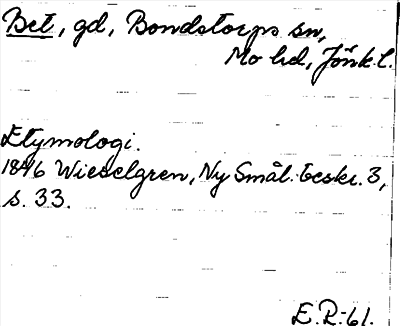 Bet, gd, Bondstorps sn,
Mo hd, Jönk. l.
Etymologi.
1846 Wieselgren, Ny Smål. beskr. 3,
s. 33.
E.R.-61.